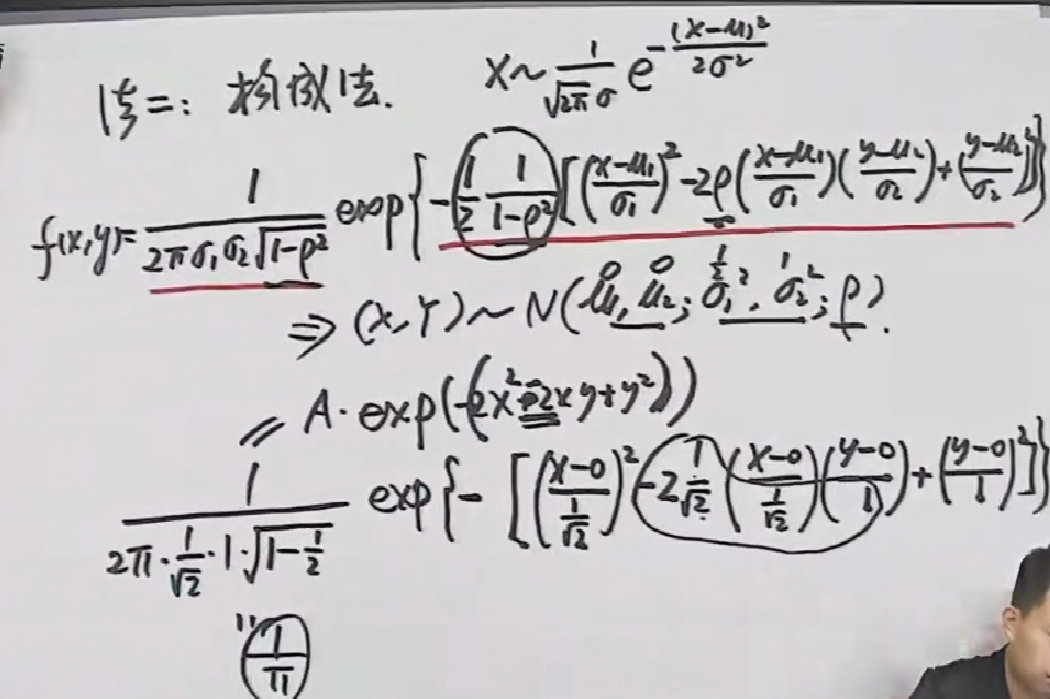 法二: 构成法. X~1/(√2π σ) e^(-(x-μ)²/(2σ²))
f(x,y)=1/(2πσ₁σ₂√(1-ρ²)) exp{-1/2 1/(1-ρ²)[((x-μ₁)/σ₁)²-2ρ((x-μ₁)/σ₁)((y-μ₂)/σ₂)+((y-μ₂)/σ₂)²]}
0 0 1/2 1
⇒ (X,Y)~N(μ₁,μ₂;σ₁²,σ₂²;ρ).
= A·exp(-(2x²-2xy+y²))
1/(2π·1/√2·1·√(1-1/2)) exp{-[((x-0)/(1/√2))²-2 1/√2((x-0)/(1/√2))((y-0)/1)+((y-0)/1)²]}
"
1/π